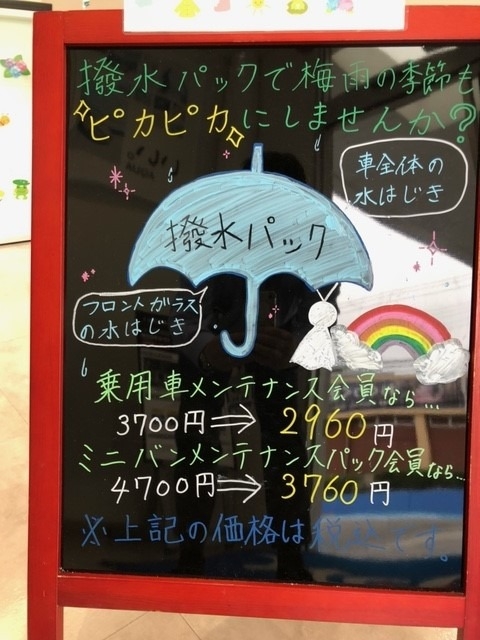 撥水パックで梅雨の季節も
ピカピカにしませんか?
車全体の
水はじき
撥水パック
フロントガラス
の水はじき
乗用車メンテナンス会員なら…
3700円⇒2960円
ミニバンメンテナンスパック会員なら…
4700円⇒3760円
※上記の価格は税込です。